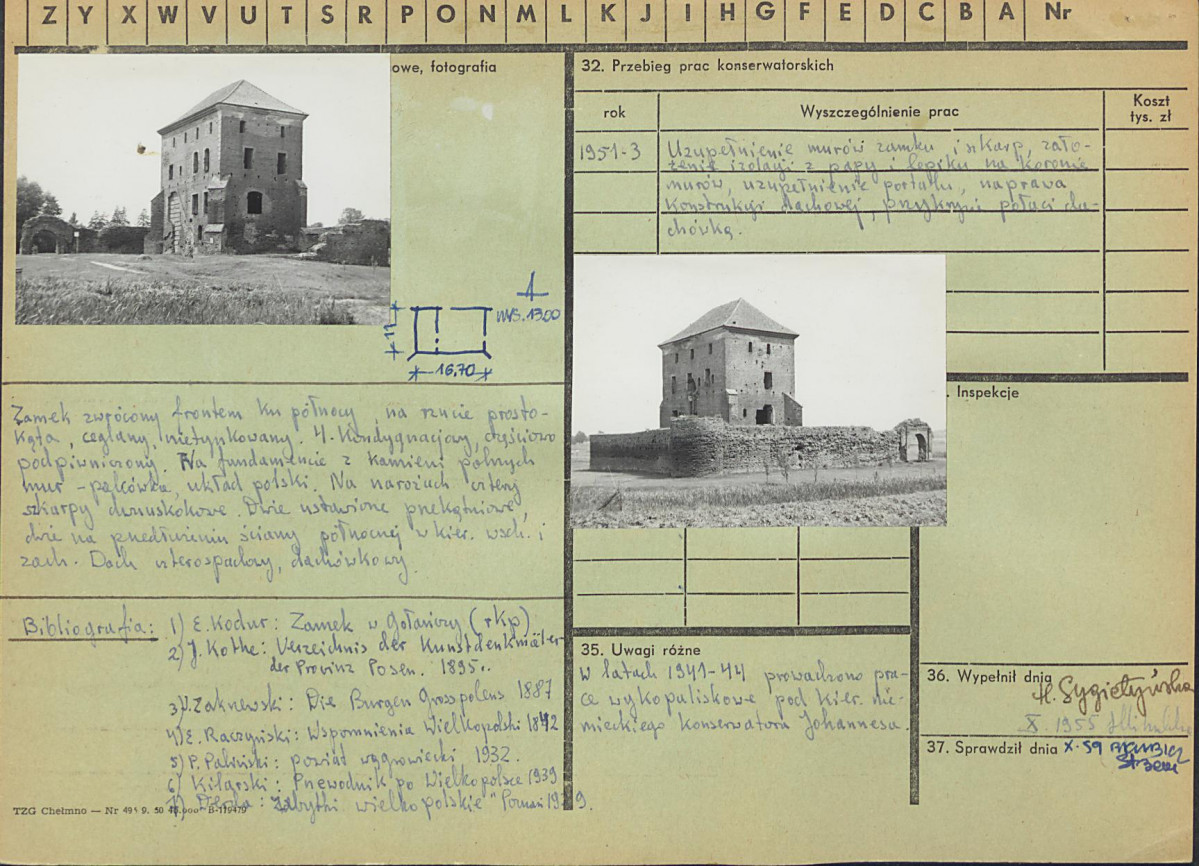 Z Y X W V U T S R P O N M L K J I H G F E D C B A Nr
owe, fotografia
wys. 13.00
11
16,70
Zamek zwrócony frontem ku północy, na rzucie prosto-
kąta, ceglany, nietynkowany. 4-kondygnacjowy, częściowo
podpiwniczony. Na fundamencie z kamieni polnych
mur - palcówka, układ polski. Na narożach cztery
szkarpy dwuuskokowe. Dwie ustawione przekątniowe,
dwie na przedłużeniu ściany północnej w kier. wsch. i
zach. Dach czterospadowy, dachówkowy.
Bibliografia:
1) E. Kodur: Zamek w Gołańczy (rkp)
2) J. Kothe: Verzeichnis der Kunstdenkmäler
der Provinz Posen. 1895.
3) Zaknewski: Die Burgen Grosspolens 1887
4) E. Raczyński: Wspomnienia Wielkopolski 1842
5) P. Paliński: powiat wągrowiecki 1932.
6) Kilarski: Przewodnik po Wielkopolsce 1939
7) : Zabytki wielkopolskie" Poznań
TZG Chełmno — Nr
32. Przebieg prac konserwatorskich
rok
Wyszczególnienie prac
Koszt
tys. zł
1951-3
Uzupełnienie murów zamku i szkarp, zało-
żenie izolacji z papy i lepiku na koronie
murów, uzupełnienie portalu, naprawa
konstrukcji dachowej, przykrycie połaci da-
chówką.
Inspekcje
35. Uwagi różne
W latach 1941-44 prowadzono pra-
ce wykopaliskowe pod kier. nie-
mieckiego konserwatora Johannesa.
36. Wypełnił dnia
H. Sygietyńska
X. 1955
37. Sprawdził dnia X. 59